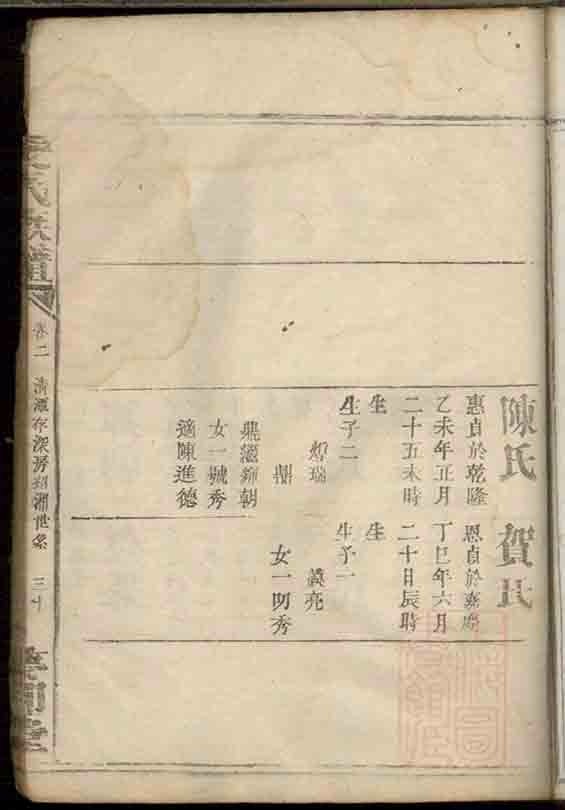 陳氏
惠貞於乾隆
乙未年五月
二十五未時
生
生子二
瑞
鼎
朝
女一城秀
適陳進德
賀氏
恩貞於嘉慶
丁巳年六月
二十日辰時
生
生子一
亮
女一明秀
氏族譜
卷二
清潭存深房紹湘世系
三十